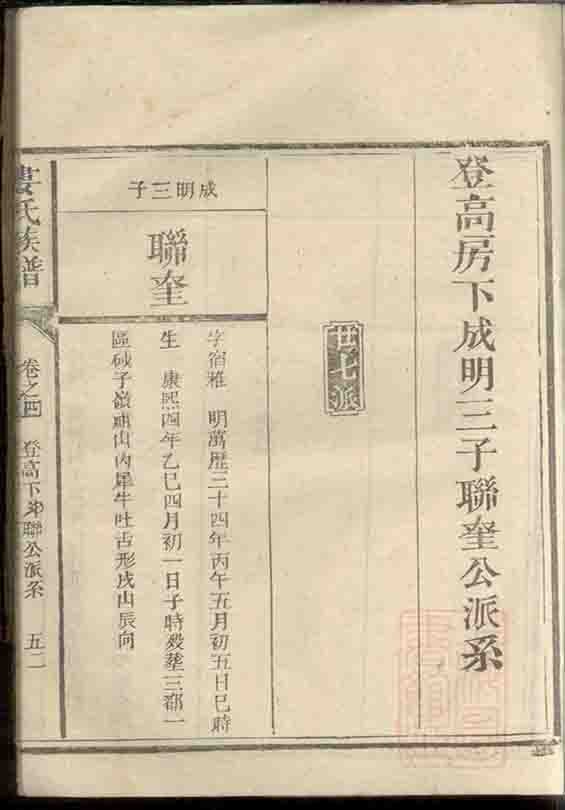 登高房下成明三子聯奎公派系
廿七派
成明三子
聯奎
字宿雅　明萬歷三十四年丙午五月初五日巳時
生　康熙四年乙巳四月初一日子時歿塟三都一
區碱子嶺頭山內犀牛吐舌形戌山辰向
婁氏族譜
卷之四　登高下　聯公派系　五二